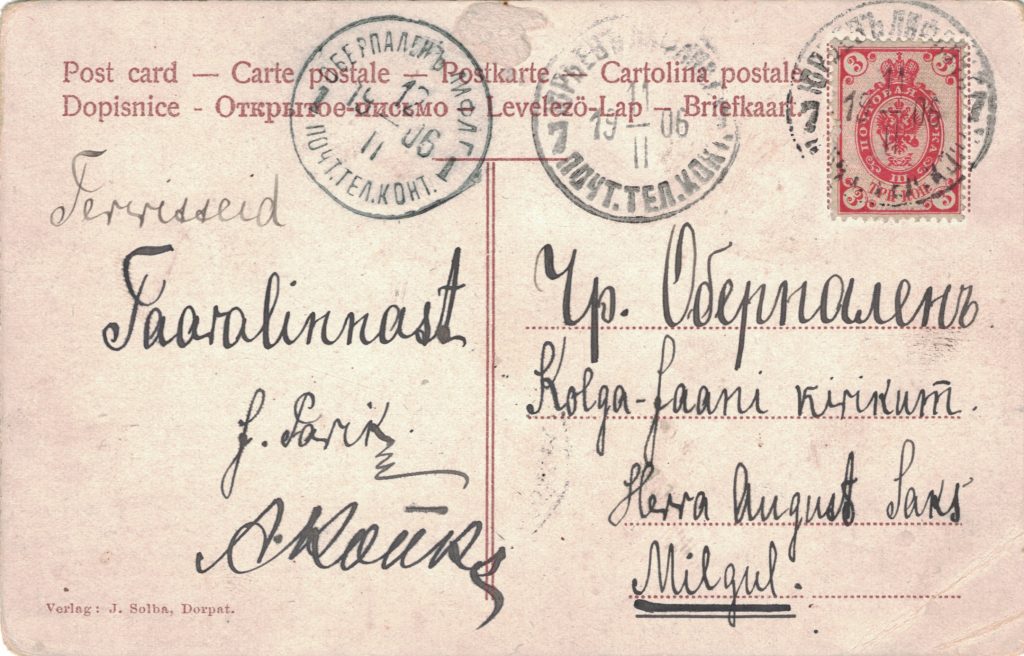 Post card — Carte postale — Postkarte — Cartolina postale
Dopisnice — Открытое письмо — Levelezö-Lap — Briefkaart
ОБЕРПАЛЕНЪ ЛИФЛ.Г.
1 12 1
19 — 06
II
ПОЧТ.ТЕЛ.КОНТ.
ЮРЬЕВЪ
11
7 19 — 06
II
ПОЧТ.ТЕЛ.КОН
ЮРЬЕВЪ ЛИФЛ
11
7 19 — 06 7
II
3 3
ПОЧТОВАЯ МАРКА
ТРИ КОП.
3 3
Terwisseid
Taaralinnast
J. Parik
A. Kouks
Чр. Оберпаленъ
Kolga-Jaani kirikum.
Herra August Saks
Milgul.
Verlag: J. Solba, Dorpat.